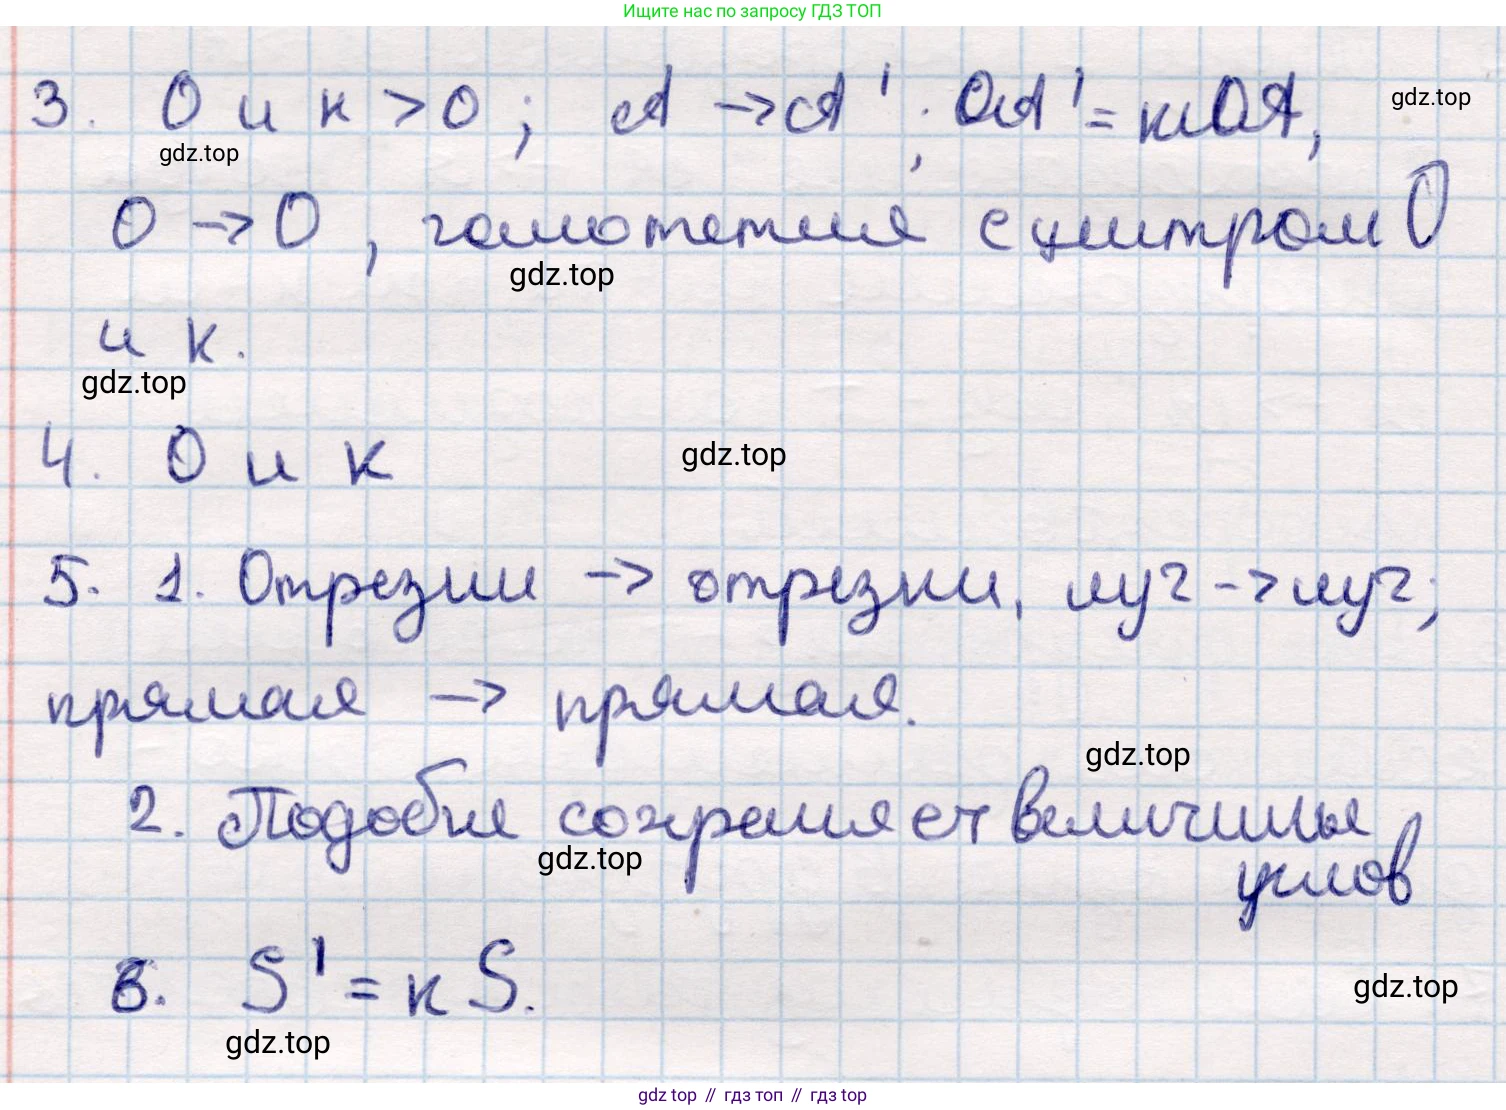 Ищите нас по запросу ГДЗ ТОП
3. О и к > 0 ; А → А' ; ОА' = кОА,
gdz.top
gdz.top
О → О , гомотетия с центром О
gdz.top
и к.
gdz.top
4. О и к
gdz.top
5. 1. Отрезки → отрезки, луч → луч;
прямая → прямая.
gdz.top
2. Подобие сохраняет величины
углов
gdz.top
6. S' = к S.
gdz.top
gdz.top
gdz top // гдз топ // gdz top